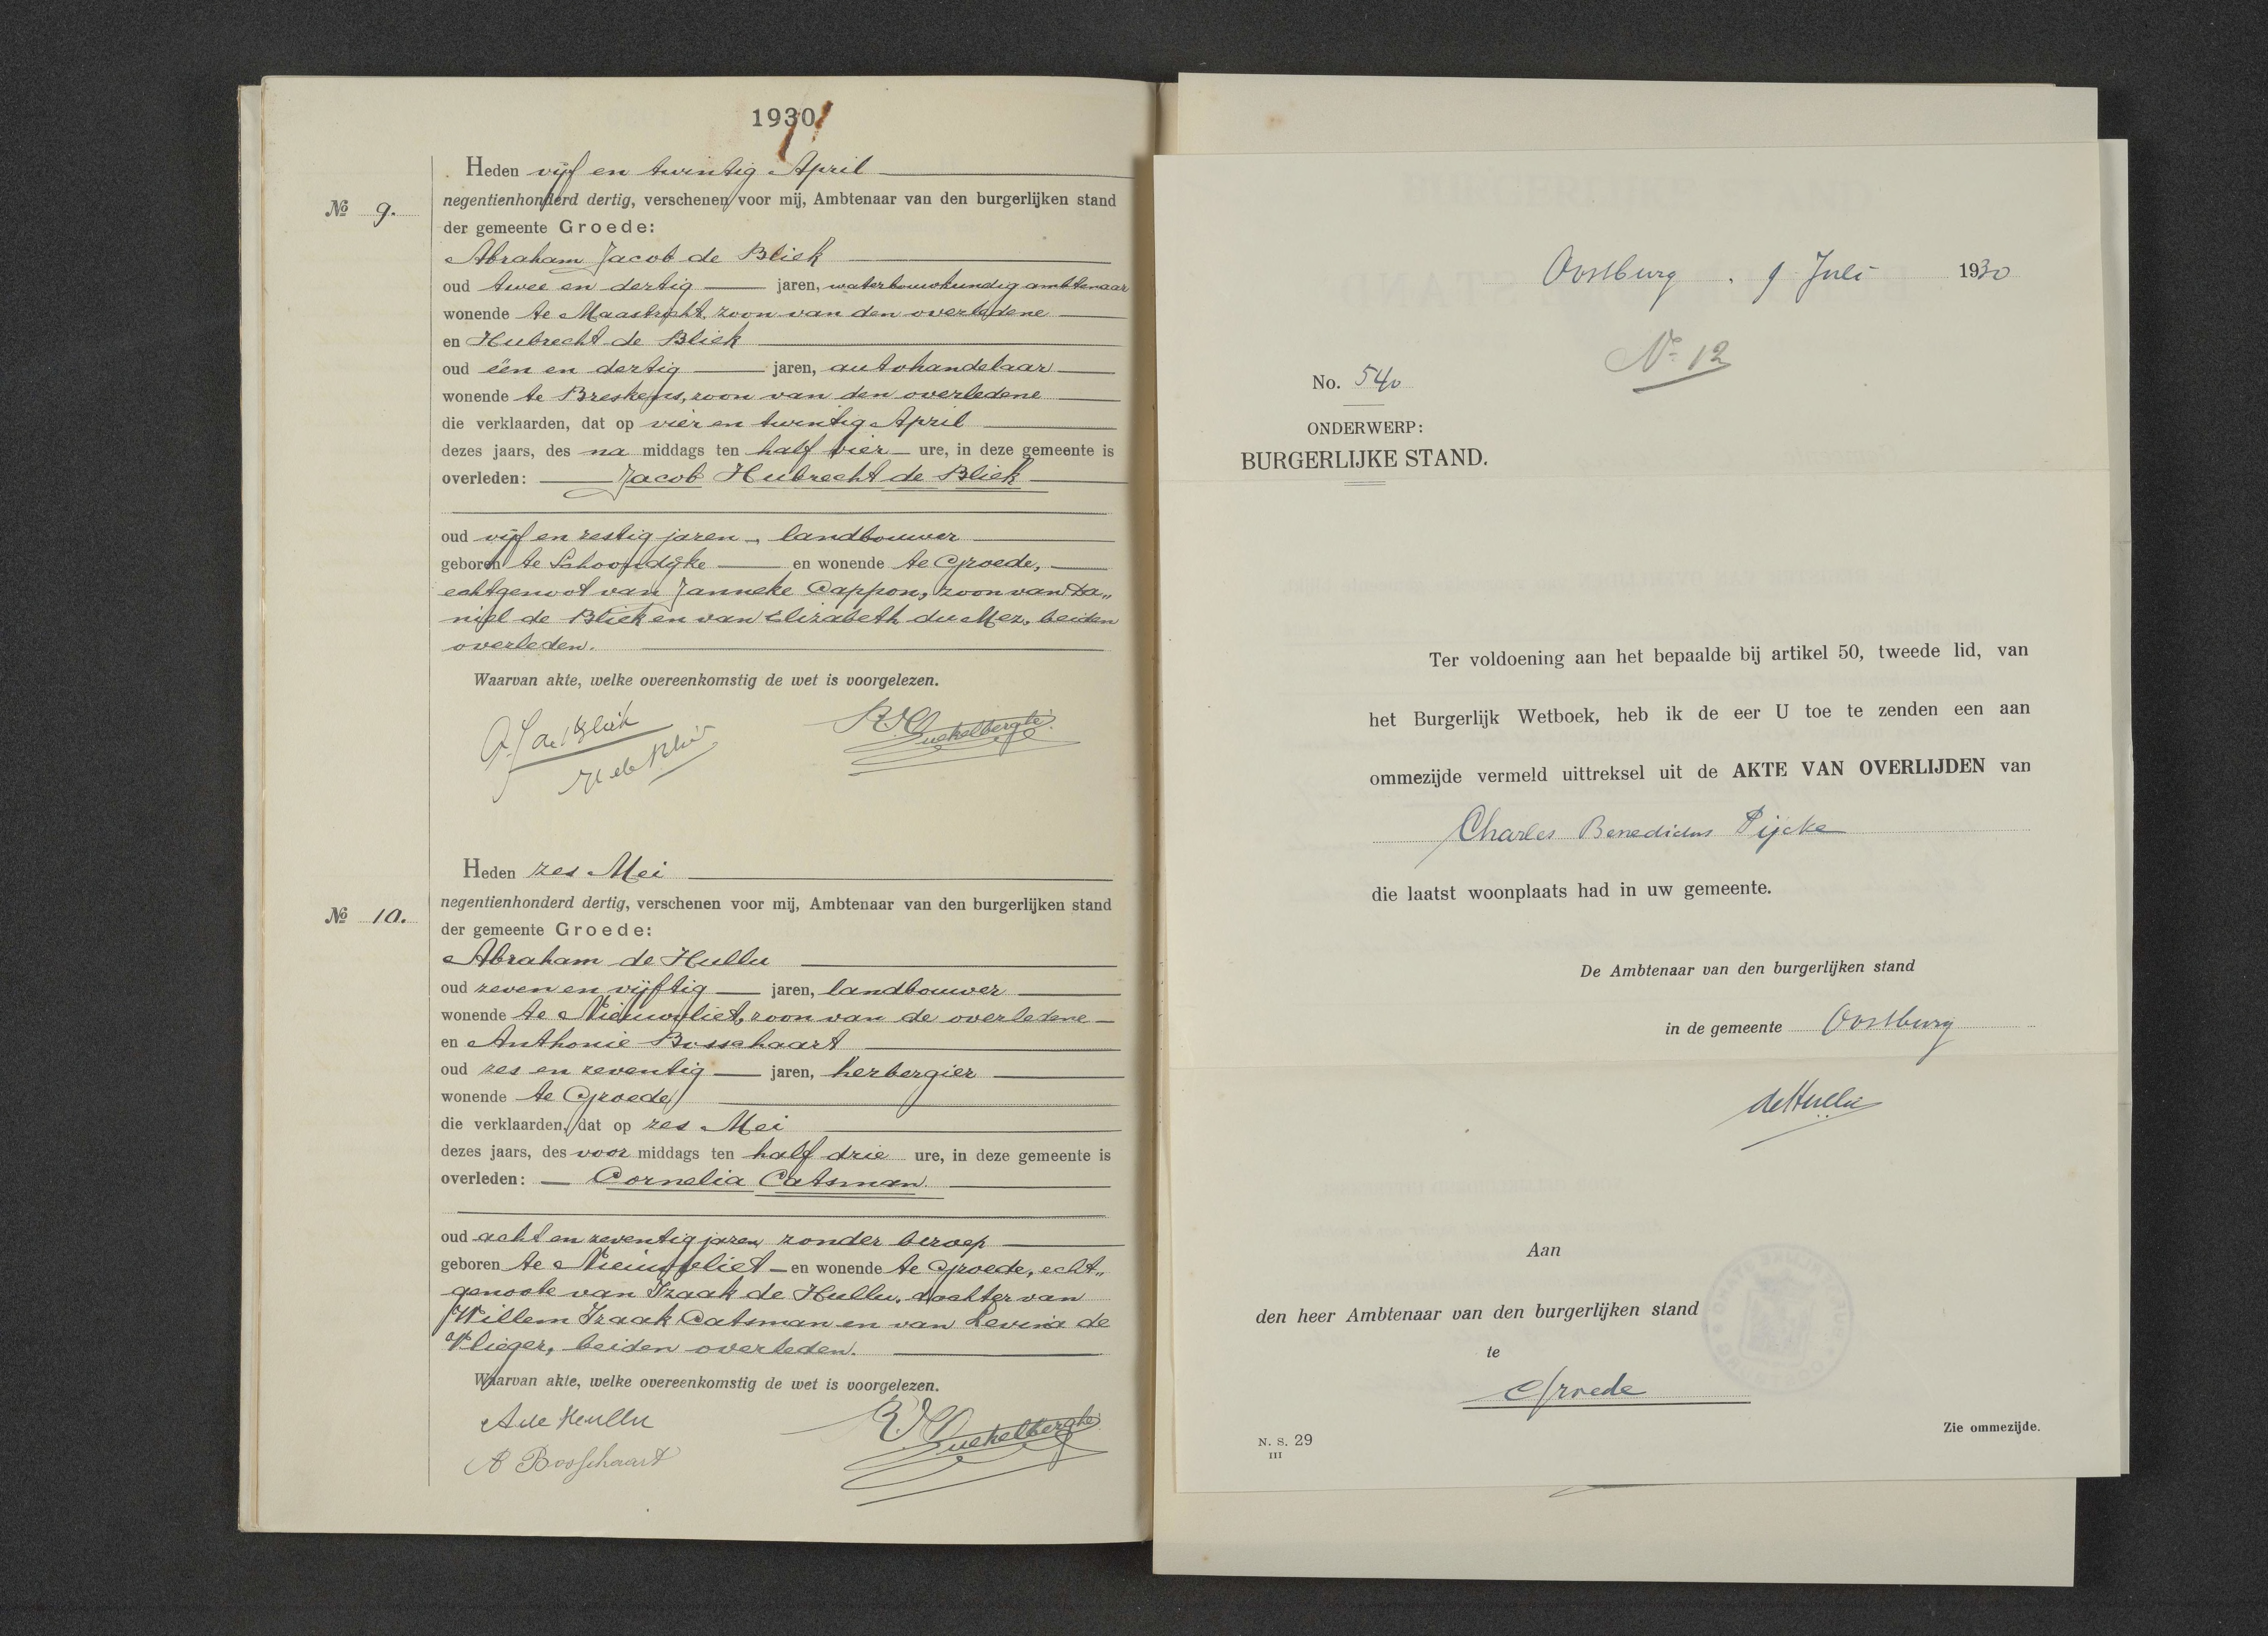 1930
Heden vijf en twintig April
№ 9.
negentienhonderd dertig, verschenen voor mij, Ambtenaar van den burgerlijken stand
der gemeente Groede:
Abraham Jacob de Bliek
oud twee en dertig jaren, waterbouwkundig ambtenaar
wonende te Maastricht, zoon van den overledene
en Hubrecht de Bliek
oud één en dertig jaren, autohandelaar
wonende te Breskens, zoon van den overledene
die verklaarden, dat op vier en twintig April
dezes jaars, des na middags ten half vier ure, in deze gemeente is
overleden: Jacob Hubrecht de Bliek
oud vijf en zestig jaren, landbouwer
geboren te Schoondijke en wonende te Groede,
echtgenoot van Janneke Cappon, zoon van Da„
niël de Bliek en van Elizabeth du Mez, beiden
overleden.
Waarvan akte, welke overeenkomstig de wet is voorgelezen.
A J de Bliek
H de Bliek
Heden zes Mei
№ 10.
negentienhonderd dertig, verschenen voor mij, Ambtenaar van den burgerlijken stand
der gemeente Groede:
Abraham de Hullu
oud zeven en vijftig jaren, landbouwer
wonende te Nieuwvliet, zoon van de overledene
en Anthonie Bosschaart
oud zes en zeventig jaren, herbergier
wonende te Groede
die verklaarden, dat op zes Mei
dezes jaars, des voor middags ten half drie ure, in deze gemeente is
overleden: Cornelia Catsman.
oud acht en zeventig jaren zonder beroep
geboren te Nieuwvliet en wonende te Groede, echt„
genoote van Izaak de Hullu, dochter van
Willem Izaak Catsman en van Levina de
Vlieger, beiden overleden.
Waarvan akte, welke overeenkomstig de wet is voorgelezen.
A de Hullu
A Bosschaart
Oostburg, 9 Juli 1930
No 12
No. 540
ONDERWERP:
BURGERLIJKE STAND.
Ter voldoening aan het bepaalde bij artikel 50, tweede lid, van
het Burgerlijk Wetboek, heb ik de eer U toe te zenden een aan
ommezijde vermeld uittreksel uit de AKTE VAN OVERLIJDEN van
Charles Benedictus Pijcke
die laatst woonplaats had in uw gemeente.
De Ambtenaar van den burgerlijken stand
in de gemeente Oostburg
de Hullu
Aan
den heer Ambtenaar van den burgerlijken stand
te
Groede
N. S. 29
III
Zie ommezijde.